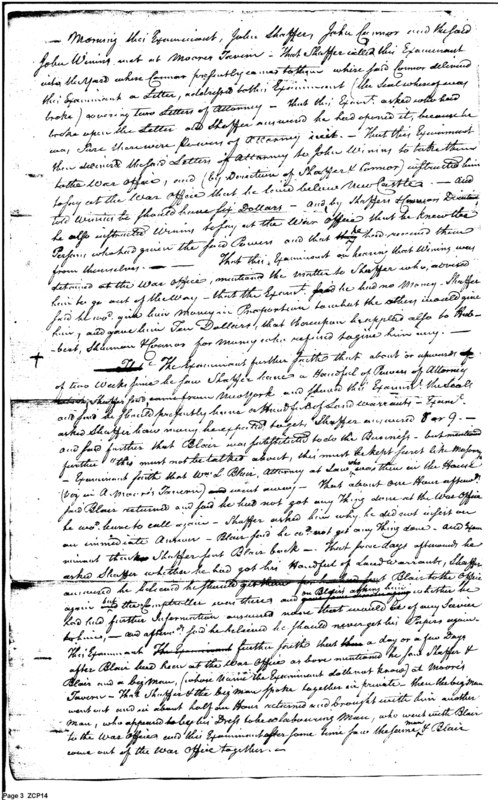 — Morning this Examinant, John Shaffer, John Connor and the said
John Winins met at Moores Tavern — That Shaffer called this Examinant
into the Yard where Connor presently came to them where said Connor delivered
this Examinant a Letter, addressed to this Examinant (the Seal whereof was
broke) covering two Letters of Attorney — that this Exam.t asked who had
broke open the Letter and Shaffer answered he had opened it, because he
was sure there were Powers of Attorney in it. — That this Examinant
then delivered the said Letters of Attorney to John Winins to take them
to the War office, and (by Direction of Shaffer & Connor) instructed him
to say at the War office that he lived below New Castle — And
told Winins he should have six Dollars — and by Shaffers & Connors Direction
he also instructed Winins to say at the War office that he knew the
Persons who had given the said Powers and that he had received them
from themselves. — That this Examinant on hearing that Winins was
detained at the War office, mentioned the matter to Shaffer who advised
him to go out of the Way — that the Exam.t said he had no Money — Shaffer
said he wo.d give him Money in Proportion to what the others would give
him, and gave him Ten Dollars, that thereupon he applied also to Hub-
bert, Shannon & Connor for Money who refused to give him any. —
The Examinant further saith that about or upwards
of two Weeks since he saw Shaffer have a Handful of Powers of Attorney
Shaffer said came from New York and shewed this Examin.t the Seals
and said he should presently have a Handful of Land warrants — Exam.t
asked Shaffer how many he expected to get, Shaffer answered 8 or 9. —
and said further that Blair was substituted to do the Business — but
further "this must not be talked about, this must be kept secret like Masonry
— Examinant saith that Wm. L. Blair, Attorney at Law who was then in the House
(viz in A. Moores Tavern) went away — That about one Hour afterw.ds
said Blair returned and said he had not got any Thing done at the War office
he wo.d have to call again — Shaffer asked him why he did not insist on
an immediate Answer — Blair said he co.d not get any Thing done. — And Exa-
minant Shaffer sent Blair back — That some days afterwards he
asked Shaffer whether he had got his Handful of Land Warrants, Shaffer
answered he believed he should get them Blair to the office
again but the Comptroller was there and on Blairs asking him whether he
had had further Information answered none that would be of any Service
to him, — and said he believed he should never get his Papers again.
This Examinant further saith that a day or a few Days
after Blair had been at the War office as bove mentioned he saw Shaffer &
Blair and a big man, (whose Name the Examinant doth not know) at Moores
Tavern — That Shaffer & the big man spoke together in private — then the big man
went out and in about half an Hour returned and brought with him another
Man, who appeared by his Dress to be a labouring Man, who went with Blair
to the War office and this Examinant after some time saw the same man & Blair
come out of the War office together. —
Page 3 ZCP14